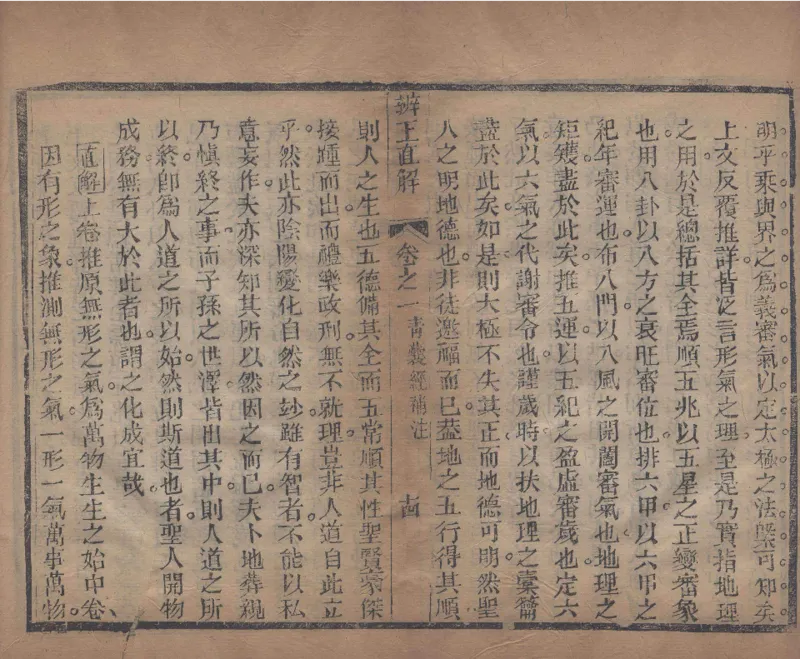 明乎乘與界之爲義審氣以定太極之法槩可知矣
上文反覆推詳皆泛言形氣之理至是乃實指地理
之用於是總括其全焉順五兆以五星之正變審象
也用八卦以八方之衰旺審位也排六甲以六甲之
紀年審運也布八門以八風之開闔審氣也地理之
矩矱盡於此矣推五運以五紀之盈虛審歲也定六
氣以六氣之代謝審令也謹歲時以扶地理之橐籥
盡於此矣如是則太極不失其正而地德可明然聖
人之明地德也非徒邀福而已葢地之五行得其順
辨正直解 卷之一 青囊經補注 十四
則人之生也五德備其全而五常順其性聖賢豪傑
接踵而出而禮樂政刑無不就理豈非人道自此立
乎然此亦陰陽變化自然之妙雖有智者不能以私
意妄作夫亦深知其所以然因之而已夫卜地葬親
乃慎終之事而子孫之世澤皆出其中則人道之所
以終卽爲人道之所以始然則斯道也者聖人開物
成務無有大於此者也謂之化成宜哉
直解上卷推原無形之氣爲萬物生生之始中卷
因有形之象推測無形之氣一形一氣萬事萬物